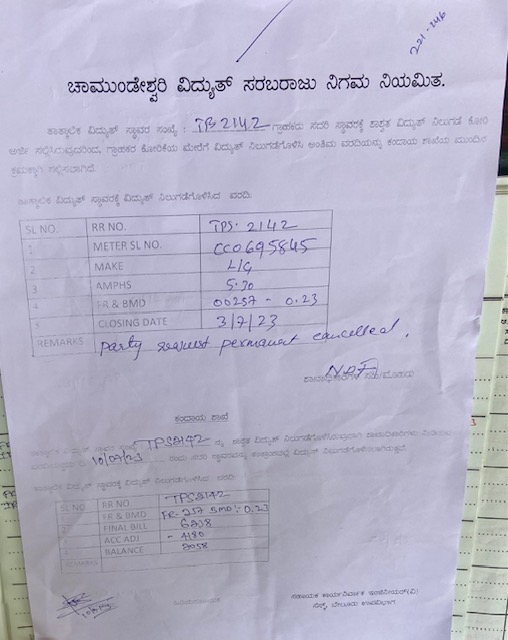 221-246
ಚಾಮುಂಡೇಶ್ವರಿ ವಿದ್ಯುತ್ ಸರಬರಾಜು ನಿಗಮ ನಿಯಮಿತ.
ತಾತ್ಕಾಲಿಕ ವಿದ್ಯುತ್ ಸ್ಥಾವರ ಸಂಖ್ಯೆ : TPS 2142 ಗ್ರಾಹಕರು ಸದರಿ ಸ್ಥಾವರಕ್ಕೆ ಶಾಶ್ವತ ವಿದ್ಯುತ್ ನಿಲುಗಡೆ ಕೋರಿ
ಅರ್ಜಿ ಸಲ್ಲಿಸಿರುವುದರಿಂದ, ಗ್ರಾಹಕರ ಕೋರಿಕೆಯ ಮೇರೆಗೆ ವಿದ್ಯುತ್ ನಿಲುಗಡೆಗೊಳಿಸಿ ಅಂತಿಮ ವರದಿಯನ್ನು ಕಂದಾಯ ಶಾಖೆಯ ಮುಂದಿನ
ಕ್ರಮಕ್ಕಾಗಿ ಸಲ್ಲಿಸಲಾಗಿದೆ.
ತಾತ್ಕಾಲಿಕ ವಿದ್ಯುತ್ ಸ್ಥಾವರಕ್ಕೆ ವಿದ್ಯುತ್ ನಿಲುಗಡೆಗೊಳಿಸಿದ ವರದಿ:
SL NO. RR NO. TPS. 2142
1 METER SL NO. CC0695845
2 MAKE L/G
3 AMPHS 5-30
4 FR & BMD 00257 - 0.23
5 CLOSING DATE 3/7/23
REMARKS Party request permanent cancelled.
ಕಂದಾಯ ಶಾಖೆ
ತಾತ್ಕಾಲಿಕ ವಿದ್ಯುತ್ ಸ್ಥಾವರ ಸಂಖ್ಯೆ TPS2142 ನ್ನು ಶಾಶ್ವತ ವಿದ್ಯುತ್
10/07/23 ರಂದು ಸದರಿ ಸ್ಥಾವರವನ್ನು
ತಾತ್ಕಾಲಿಕ ವಿದ್ಯುತ್ ಸ್ಥಾವರಕ್ಕೆ ವಿದ್ಯುತ್ ನಿಲುಗಡೆಗೊಳಿಸಿದ ವರದಿ:
SL NO RR NO TPS2142
FR & BMD FR-257 BMD:-0.23
FINAL BILL 6238
ACC ADJ - 4180
BALANCE 2058
REMARKS
ಸಹಾಯಕ ಕಾರ್ಯನಿರ್ವಾಹಕ ಇಂಜಿನಿಯರ್(ವಿ)
ಬೇಲೂರು ಉಪವಿಭಾಗ